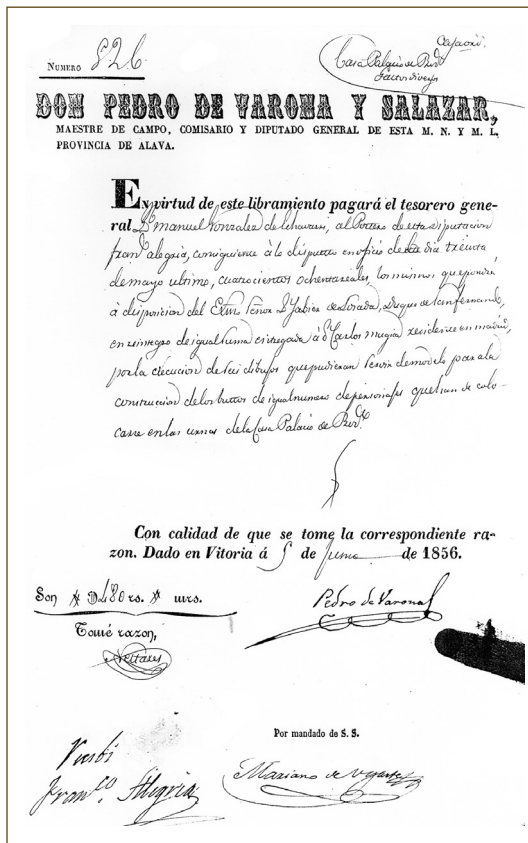 NUMERO 826.
Casa Palacio de Prov.
DON PEDRO DE VARONA Y SALAZAR,
MAESTRE DE CAMPO, COMISARIO Y DIPUTADO GENERAL DE ESTA M. N. Y M. L.
PROVINCIA DE ALAVA.
En virtud de este libramiento pagará el tesorero gene-
ral D. Manuel Gonzalez de Echavarri, al Portero de esta Diputacion
Fran. Alegria, consiguiente á lo dispuesto en oficio de dia treinta
de mayo ultimo, cuatrocientos ochenta reales, los mismos que pondrá
á disposicion del Señor D. Duque de San Fernando,
en reintegro de igual suma entregada á D. Carlos Mugica residente en Madrid,
por la ejecucion de seis dibujos que pudieran servir de modelo para la
construccion de los bustos de igual numero de personajes que han de colo-
carse en las de la Casa Palacio de Prov.
Con calidad de que se tome la correspondiente ra-
zon. Dado en Vitoria á 5 de Junio de 1856.
Son 480 rs. mrs.
Pedro de Varona
Tomé razon,
Por mandado de S. S.
Recibi
Mariano de
Fran.co Alegria